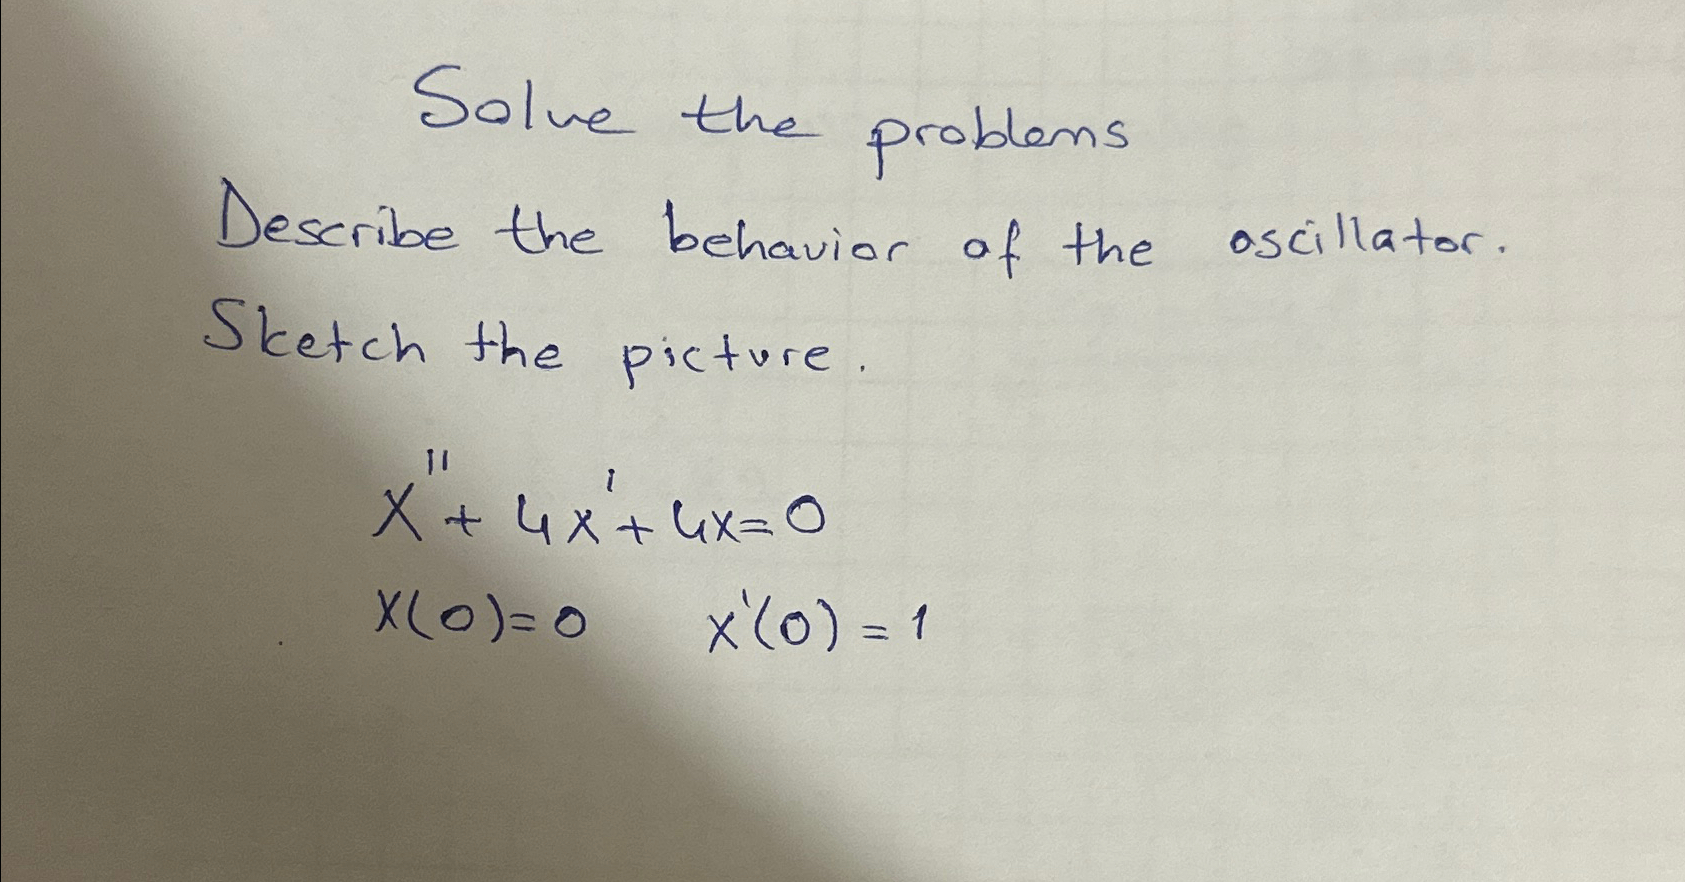 Solve the problems
Describe the behavior of the oscillator.
Sketch the picture.
x'' + 4x' + 4x = 0
x(0) = 0 x'(0) = 1